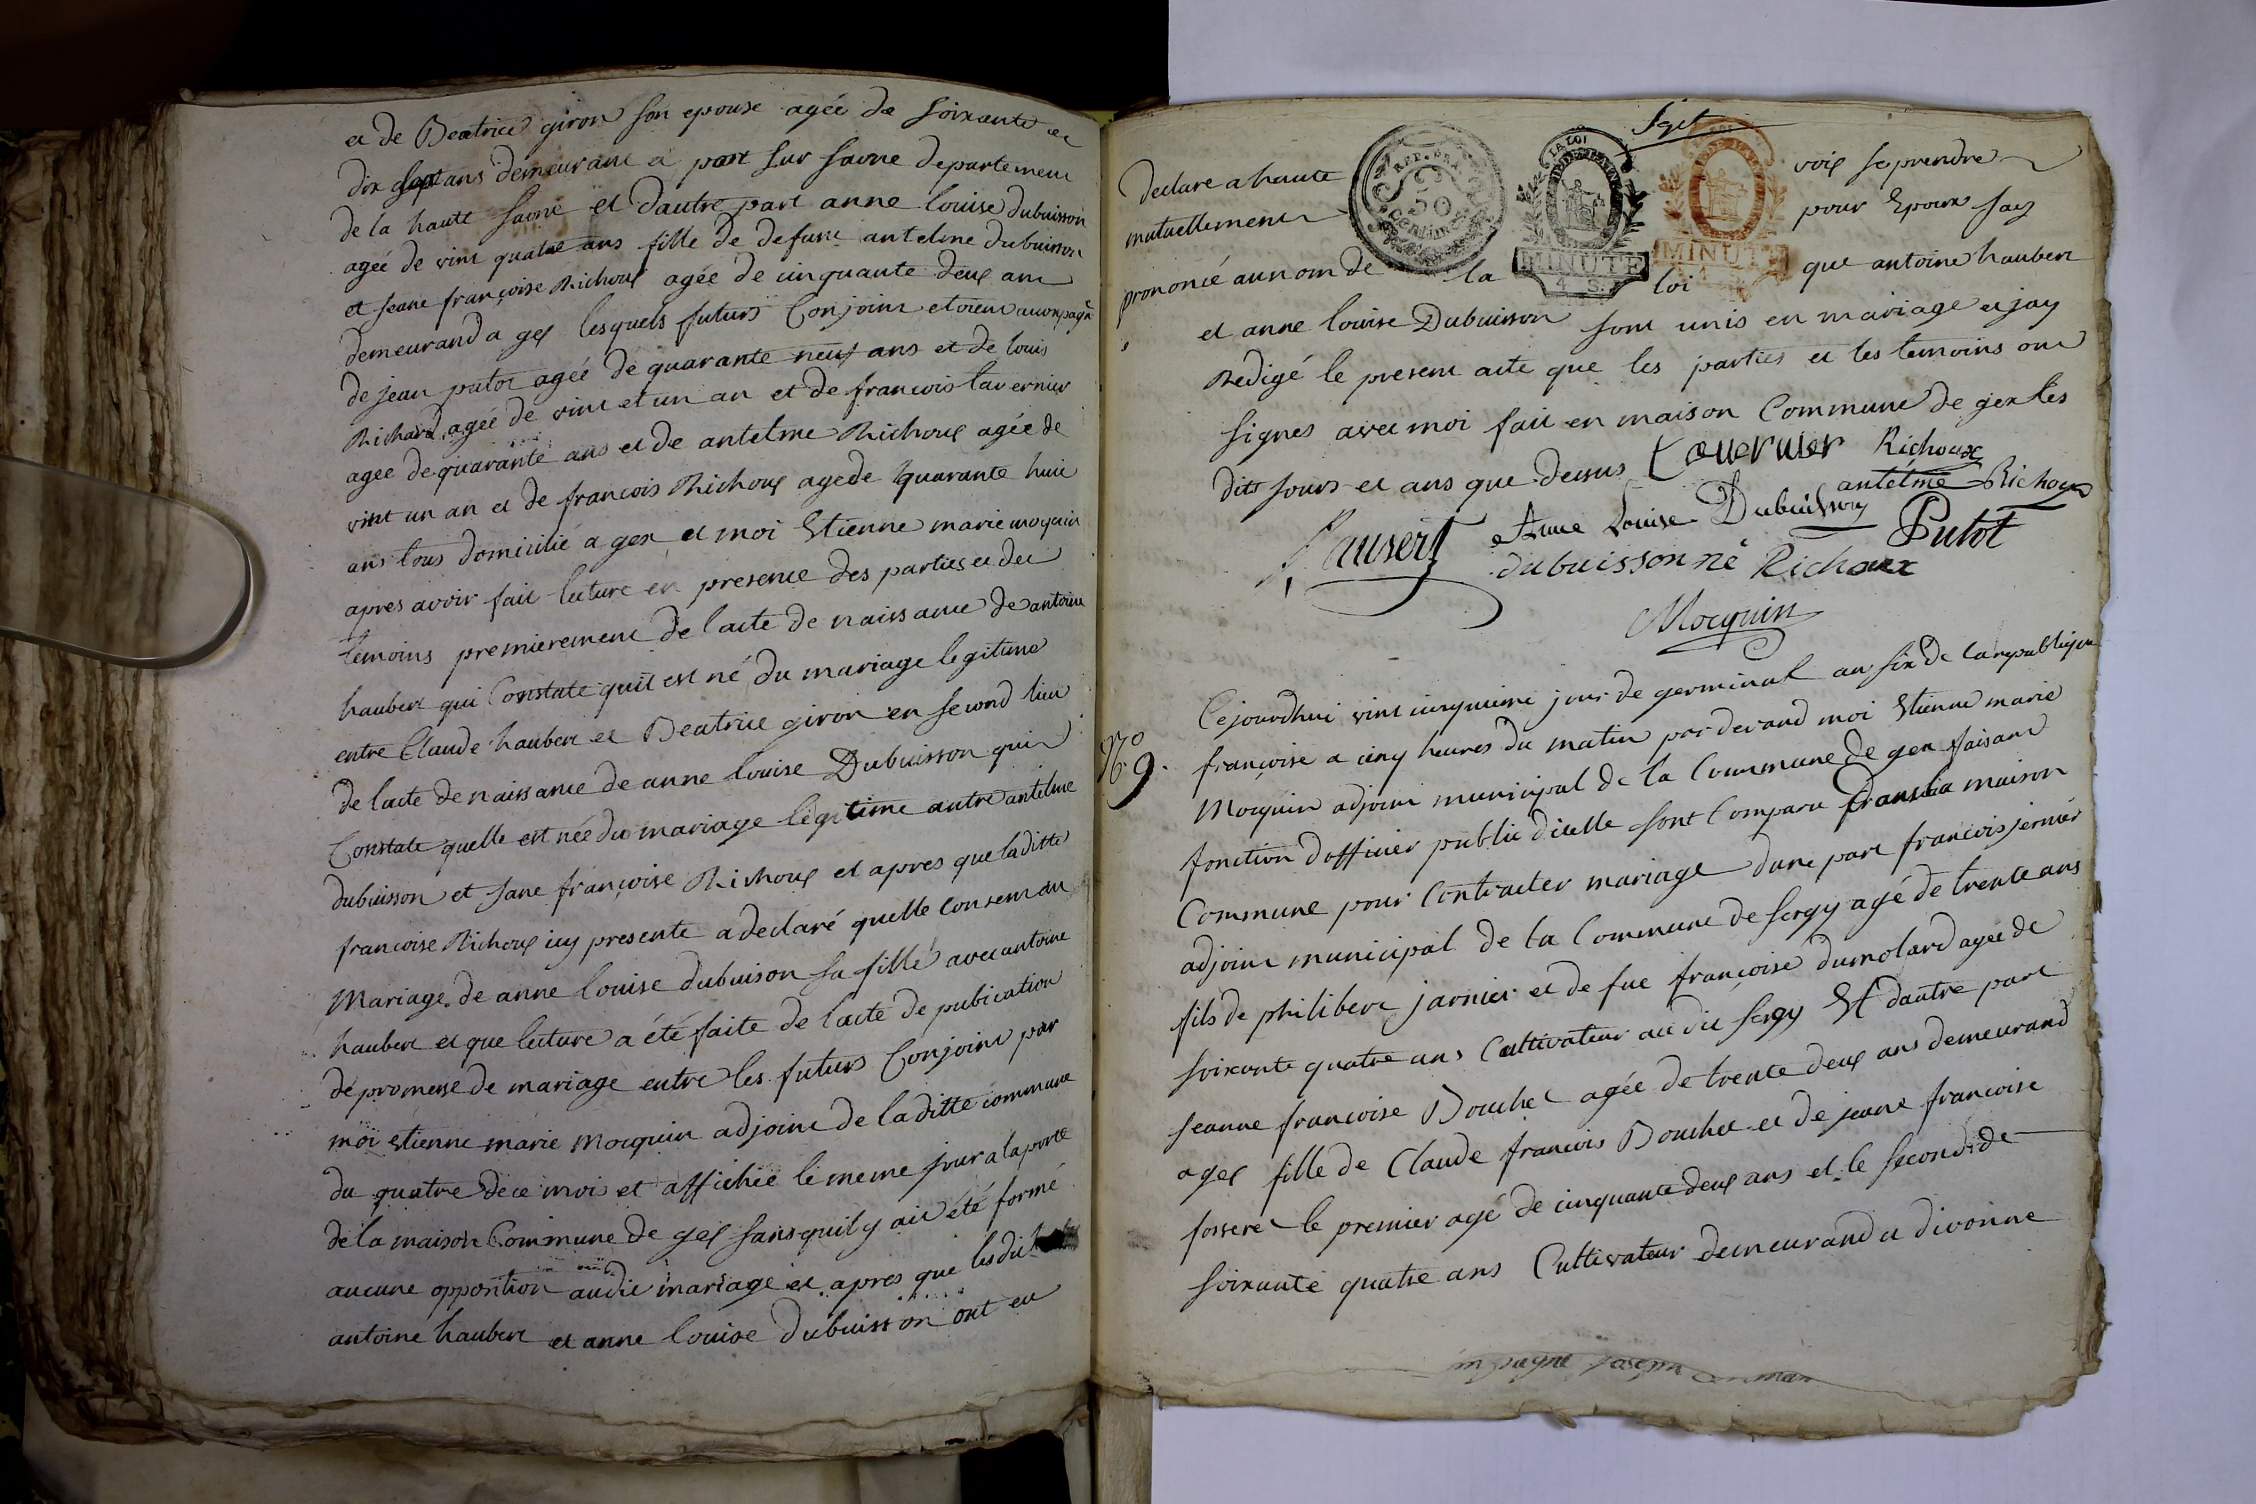 et de Beatrice giron son epouse agée de soixante et
dix sept ans demeurant a port sur saone departement
de la haute saone et dautre part anne louise dubuisson
agée de vint quatre ans fille de defunt antelme dubuisson
et jeane françoise Richoux agée de cinquante deux ans
demeurand a gex lesquels futurs Conjoint etoient accompagné
de jean putot agée de quarante neuf ans et de louis
Richard agée de vint et un an et de francois tavernier
agée de quarante ans et de antelme Richoux agée de
vint un an et de francois Richoux agé de quarante huit
ans tous domicilié a gex et moi Etienne marie moquin
apres avoir fait lecture en presence des parties et des
temoins premierement de lacte de naissance de antoine
haubert qui Constate quil est né du mariage legitime
entre Claude haubert et Beatrice giron en second lieu
de lacte de naissance de anne louise Dubuisson qui
Constate quelle est née du mariage légitime antre antelme
dubuisson et jane françoise Richoux et apres que la ditte
francoise Richoux icy presente a declaré quelle consent au
Mariage de anne louise dubuison sa fille avec antoine
haubert et que lecture a été faite de lacte de pubication
de promesse de mariage entre les futurs Conjoint par
moi etienne marie Mocquin adjoint de la ditte commune
du quatre de ce moi et affichée le meme jour a la porte
de la maison Commune de gex sans quil y ait été formé
aucune opposition audit mariage et apres que lesdit
antoine haubert et anne louise dubuisson ont eu
Declare a haute voix se prendre
mutuellement pour Epoux jay
prononcé au nom de la loi que antoine haubert
REP. FRA.
50
centimes
LA LOI
MINUTE
4 S.
MINUTE
et anne louise Dubuisson sont unis en mariage et jay
Redigé le present acte que les parties et les temoins ont
signes avec moi fait en maison Commune de gex les
dits jours et ans que dessus Tavernier Richoux
antelme Richoux
Anne Louise Dubuisson Putot
haubert
dubuisson né Richoux
Mocquin
N.o 9.
Cejourdhui vint cinquieme jour de germinal an six de la republique
françoise a cinq heures du matin par devand moi Etienne marie
Mocquin adjoint municipal de la Commune de gex faisant
fonction dofficier public dicelle sont Comparu dans la maison
Commune pour Contracter mariage dune part francois jernier
adjoint municipal de la Commune de sergy agé de trente ans
fils de philibert jarnier et de fue françoise dumolard agée de
soixante quatre ans Cultivateur au dit sergy Et dautre part
jeanne francoise Bouchet agée de trente deux ans demeurand
a gex fille de Claude francois Bouchet et de jeane francoise
fosseret le premier agé de cinquante deux ans et le second de
soixante quatre ans Cultivateur demeurand a divonne